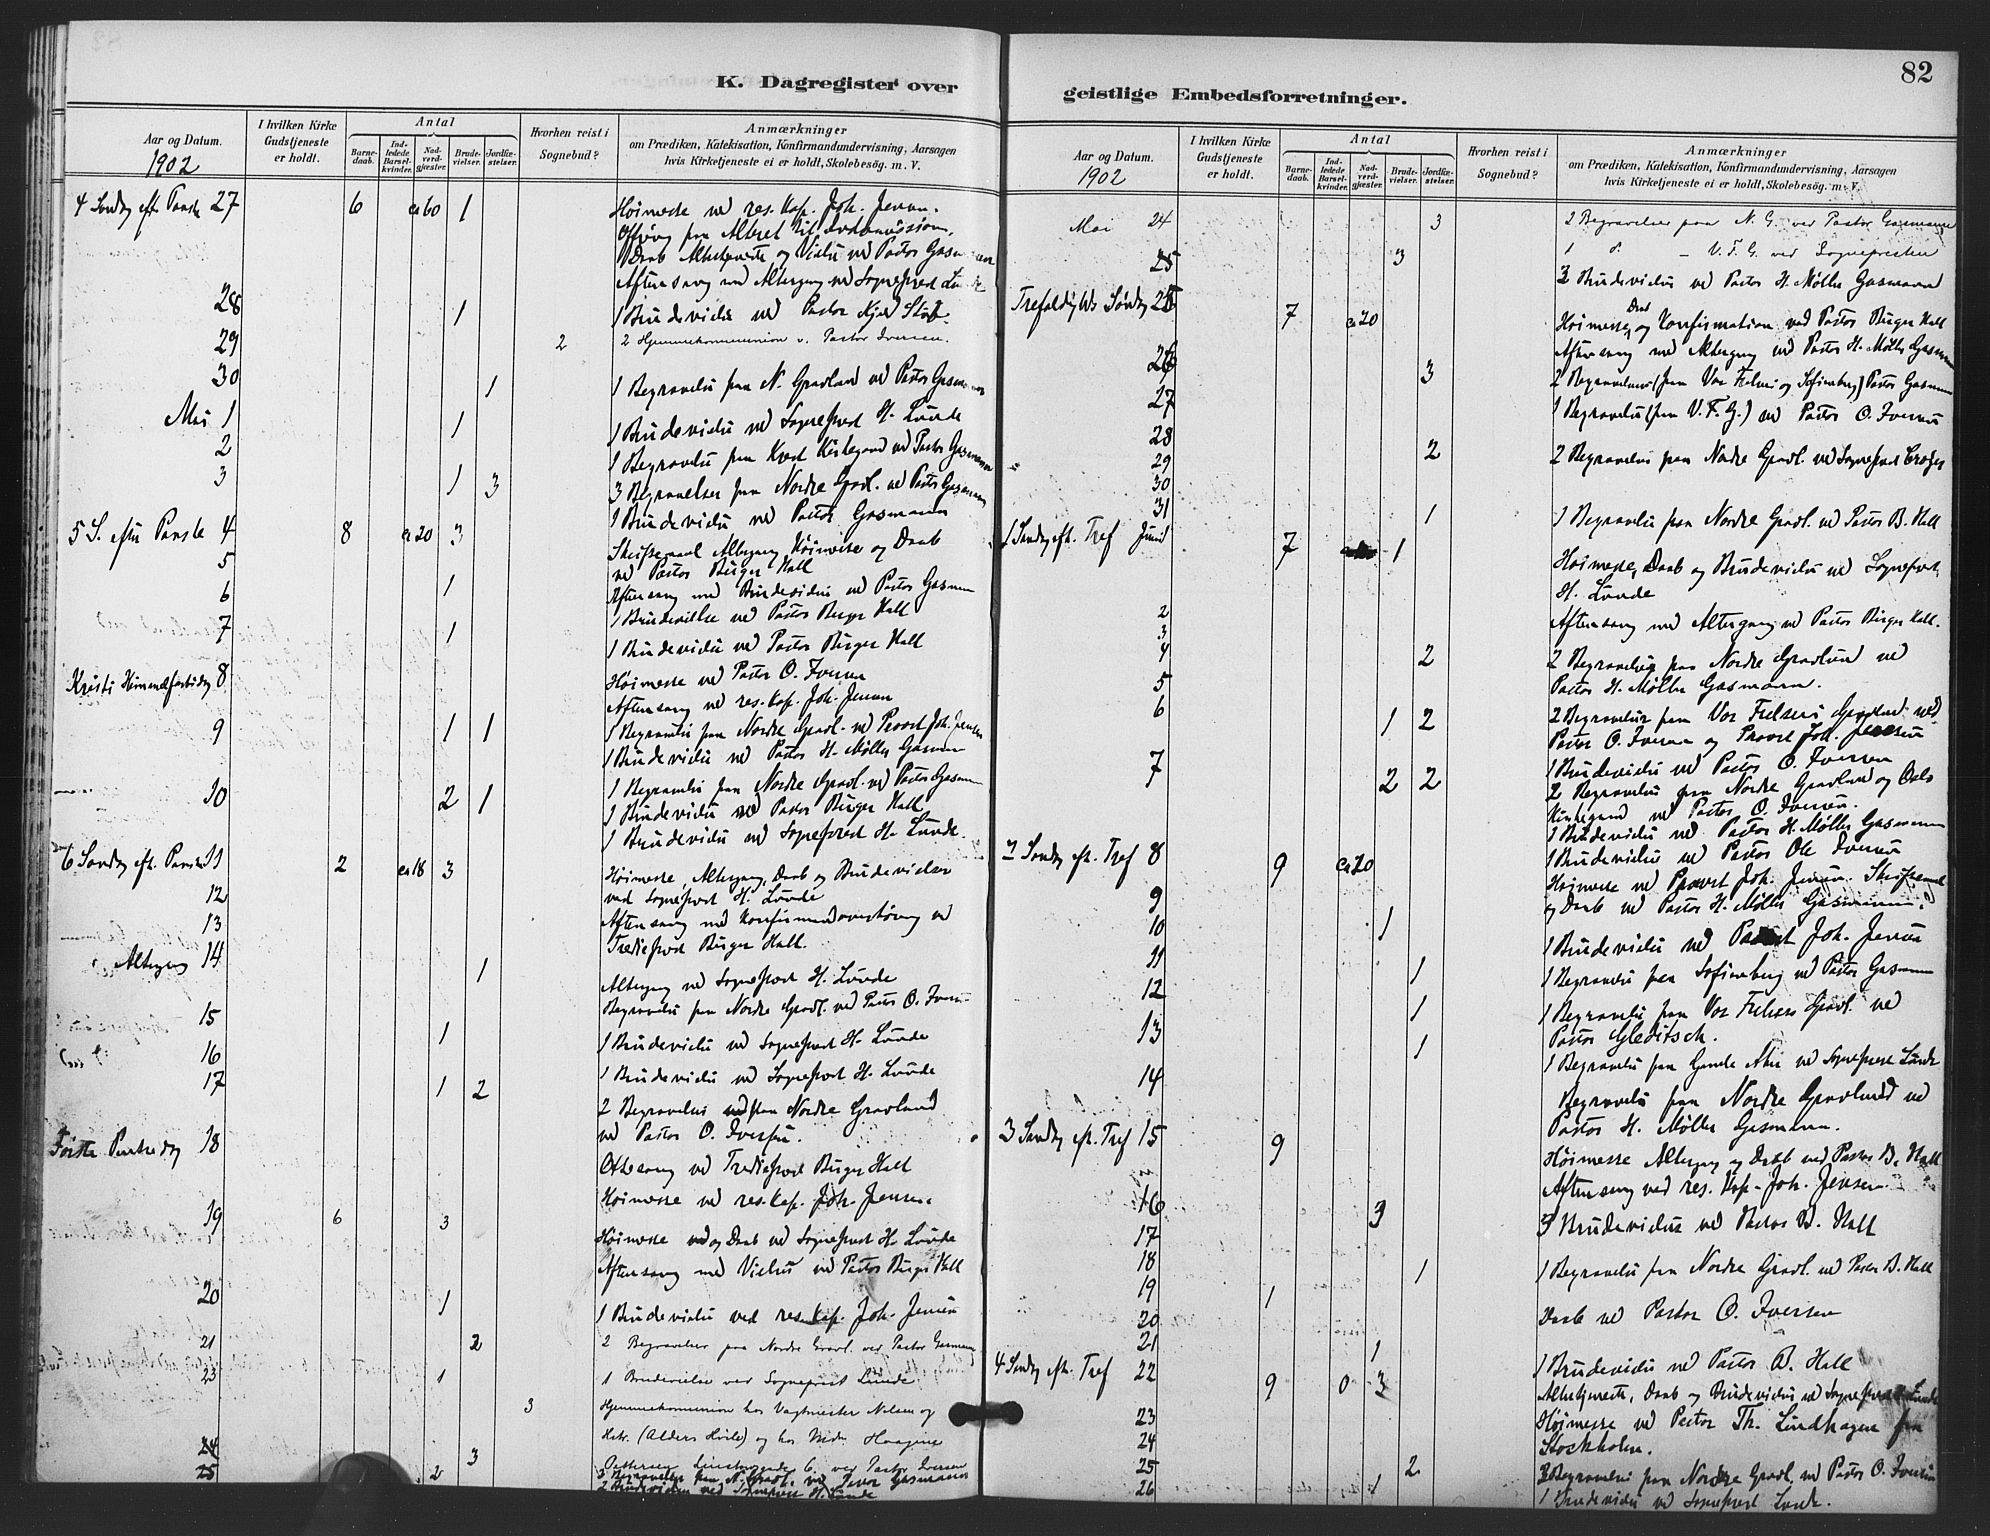 82
K. Dagregister over geistlige Embedsforretninger.
Aar og Datum. 1902
I hvilken Kirke Gudstjeneste er holdt.
Antal
Barnedaab.
Indledede Barselkvinder.
Nadverdgjester.
Brudevielser.
Jordfæstelser.
Hvorhen reist i Sognebud?
Anmærkninger
om Prædiken, Katekisation, Konfirmandundervisning, Aarsagen
hvis Kirketjeneste ei er holdt, Skolebesög. m. V.
4 Søndag eft. Paaske 27 6 ca 60 1 Høimesse ved res. Kap. Joh. Jensen.
Daab Altertjeneste og Vielse ved Pastor Gasmann
Aftensang med Altergang ved Sogneprest Lunde
28 1 1 Brudevielse ved Pastor
29 2 2 Hjemmekommunion v. Pastor Iversen.
30 1 1 Begravelse fra N. Gravlund ved Pastor Gasmann
Mai 1 1 1 Brudevielse ved Sogneprest H. Lunde
2 1 Begravelse fra Krist Kirkegaard ved Pastor Gasmann
3 1 3 3 Begravelser fra Nordre Gravl. ved Pastor Gasmann
1 Brudevielse ved Pastor Gasmann
5 S. efter Paaske 4 8 ca 20 3 Skriftemaal Altergang Høimesse og Daab
ved Pastor Birger Hall
5 Aftensang med Brudevielse ved Pastor Gasmann
6 1 1 Brudevielse ved Pastor Birger Hall
7 1 1 Brudevielse ved Pastor Birger Hall
Kristi Himmelfartsdag 8 Høimesse ved Pastor O. Iversen
Aftensang ved res. Kap. Joh. Jensen
9 1 1 1 Begravelse fra Nordre Gravl. ved Provst Joh. Jensen
1 Brudevielse ved Pastor H. Møller Gasmann
10 2 1 1 Begravelse fra Nordre Gravl. ved Pastor Gasmann
1 Brudevielse ved Pastor Birger Hall
1 Brudevielse ved Sogneprest H. Lunde.
6 Søndag eft. Paaske 11 2 ca 18 3 Høimesse, Altergang, Daab og Brudevielser
ved Sogneprest H. Lunde
12 Aftensang med Konfirmandoverhøring ved
13 Tredieprest Birger Hall.
Altergang 14 1 Altergang ved Sogneprest H. Lunde
Begravelse fra Nordre Gravl. ved Pastor O. Iversen
15 1 1 Brudevielse ved Sogneprest H. Lunde
16 1 Brudevielse ved Sogneprest H. Lunde
17 1 2 2 Begravelser fra Nordre Gravlund
ved Pastor O. Iversen.
Første Pinsedag 18 Ottesang ved Tredieprest Birger Hall
Høimesse ved res. Kap. Joh. Jensen.
19 6 3 Høimesse og Daab ved Sogneprest H. Lunde
Aftensang med Vielser ved Pastor Birger Hall
20 1 1 Brudevielse ved res. Kap. Joh. Jensen
21 2 2 Begravelser fra Nordre Gravl. ved Pastor Gasmann
23 1 1 Brudevielse ved Sogneprest Lunde
3 Hjemmekommunion hos Vagtmester Nilsen og
(Alders Hvile) og hos Mdm. Haagine
24 3 Pettersen 6. ved Pastor Iversen
25 2 3 Begravelser fra N. Gravl. ved Pastor Gasmann
2 Brudevielser ved Sogneprest H. Lunde
Aar og Datum. 1902
I hvilken Kirke Gudstjeneste er holdt.
Antal
Barnedaab.
Indledede Barselkvinder.
Nadverdgjester.
Brudevielser.
Jordfæstelser.
Hvorhen reist i Sognebud?
Anmærkninger
om Prædiken, Katekisation, Konfirmandundervisning, Aarsagen
hvis Kirketjeneste ei er holdt, Skolebesög. m. V.
Mai 24 3 2 Begravelser fra N. G. ved Pastor Gasmann
1 d. – V. F. G. ved Sognepresten
25 3 3 Brudevielser ved Pastor H. Møller Gasmann
Trefoldigheds Søndag 25 7 ca 20 Høimesse, Daab og Konfirmation ved Pastor Birger Hall
Aftensang med Altergang ved Pastor H. Møller Gasmann
26 3 2 Begravelser (fra Vor Frelser og Sofienberg) Pastor Gasmann
27 1 Begravelse (fra V. F. G.) ved Pastor O. Iversen
28 2 2 Begravelser fra Nordre Gravl. ved Sogneprest
29
30
31 1 1 Begravelse fra Nordre Gravl. ved Pastor B. Hall
1 Søndag eft. Tref Juni 7 1 Høimesse, Daab og Brudevielse ved Sogneprest
H. Lunde
2 Aftensang med Altergang ved Pastor Birger Hall.
3
4 2 2 Begravelser fra Nordre Gravlund ved
5 Pastor H. Møller Gasmann.
6 1 2 2 Begravelser fra Vor Frelsers Gravlund ved
Pastor O. Iversen og Provst Joh. Jensen
1 Brudevielse ved Pastor O. Iversen
7 2 2 2 Begravelser fra Nordre Gravlund og Oslo
Kirkegaard ved Pastor O. Iversen.
1 Brudevielse ved Pastor H. Møller Gasmann
1 Brudevielse ved Pastor Ole Iversen
2 Søndag eft. Tref 8 9 ca 20 Høimesse ved Provst Joh. Jensen. Skriftemaal
og Daab ved Pastor H. Møller Gasmann.
9
10 1 1 Brudevielse ved Joh. Jensen
11 1 1 Begravelse fra Sofienberg ved Pastor Gasmann
12 1 1 Begravelse fra Vor Frelsers Gravl. ved
Pastor Gleditsch.
13 1 1 Begravelse fra Gamle Aker ved Sogneprest Lunde
14 Begravelse fra Nordre Gravlund ved
Pastor H. Møller Gasmann.
3 Søndag eft. Tref 15 9 Høimesse Altergang og Daab ved Pastor B. Hall
Aftensang ved res. Kap. Joh. Jensen.
16 3 3 Brudevielser ved Pastor B. Hall
17
18 1 1 Begravelse fra Nordre Gravl. ved Pastor B. Hall
19 1 Daab ved Pastor O. Iversen
20
21 1 1 Brudevielse ved Pastor B. Hall
4 Søndag eft. Tref 22 9 0 3 Altertjeneste, Daab og Brudevielser ved Sogneprest Lunde
23 Høimesse ved Pastor Th. Lindhagen fra
24 Stockholm.
25 2 2 Begravelser fra Nordre Gravl. ved Pastor O. Iversen
26 1 1 Brudevielse ved Sogneprest Lunde.